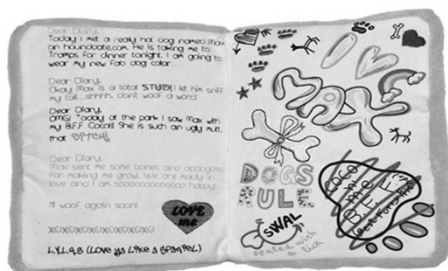 Dear Diary,
Today I met a really hot dog named Max
on hounddate.com. He is taking me to
Tramps for dinner tonight. I am going to
wear my new Fab dog collar.
Dear Diary,
Okay Max is a total STUD! I let him sniff
my tail...shhhh, dont woof a word
Dear Diary,
OMG! Today at the park I saw Max with
my B.F.F Coco!!! She is such an ugly mutt.
that BITCH!
Dear Diary,
Max sent me some bones and apologized
for making me growl. We are madly in
love and I am soooooooooooo happy!
I'll woof again soon!
LOVE
me
XOXOXOXOXOXOXOXO
L.Y.L.A.S (Love ya Like a Spaniel)
MAX
DOGS
RULE
COCO
n
me
B.F.F
SWAL
sealed with
a lick